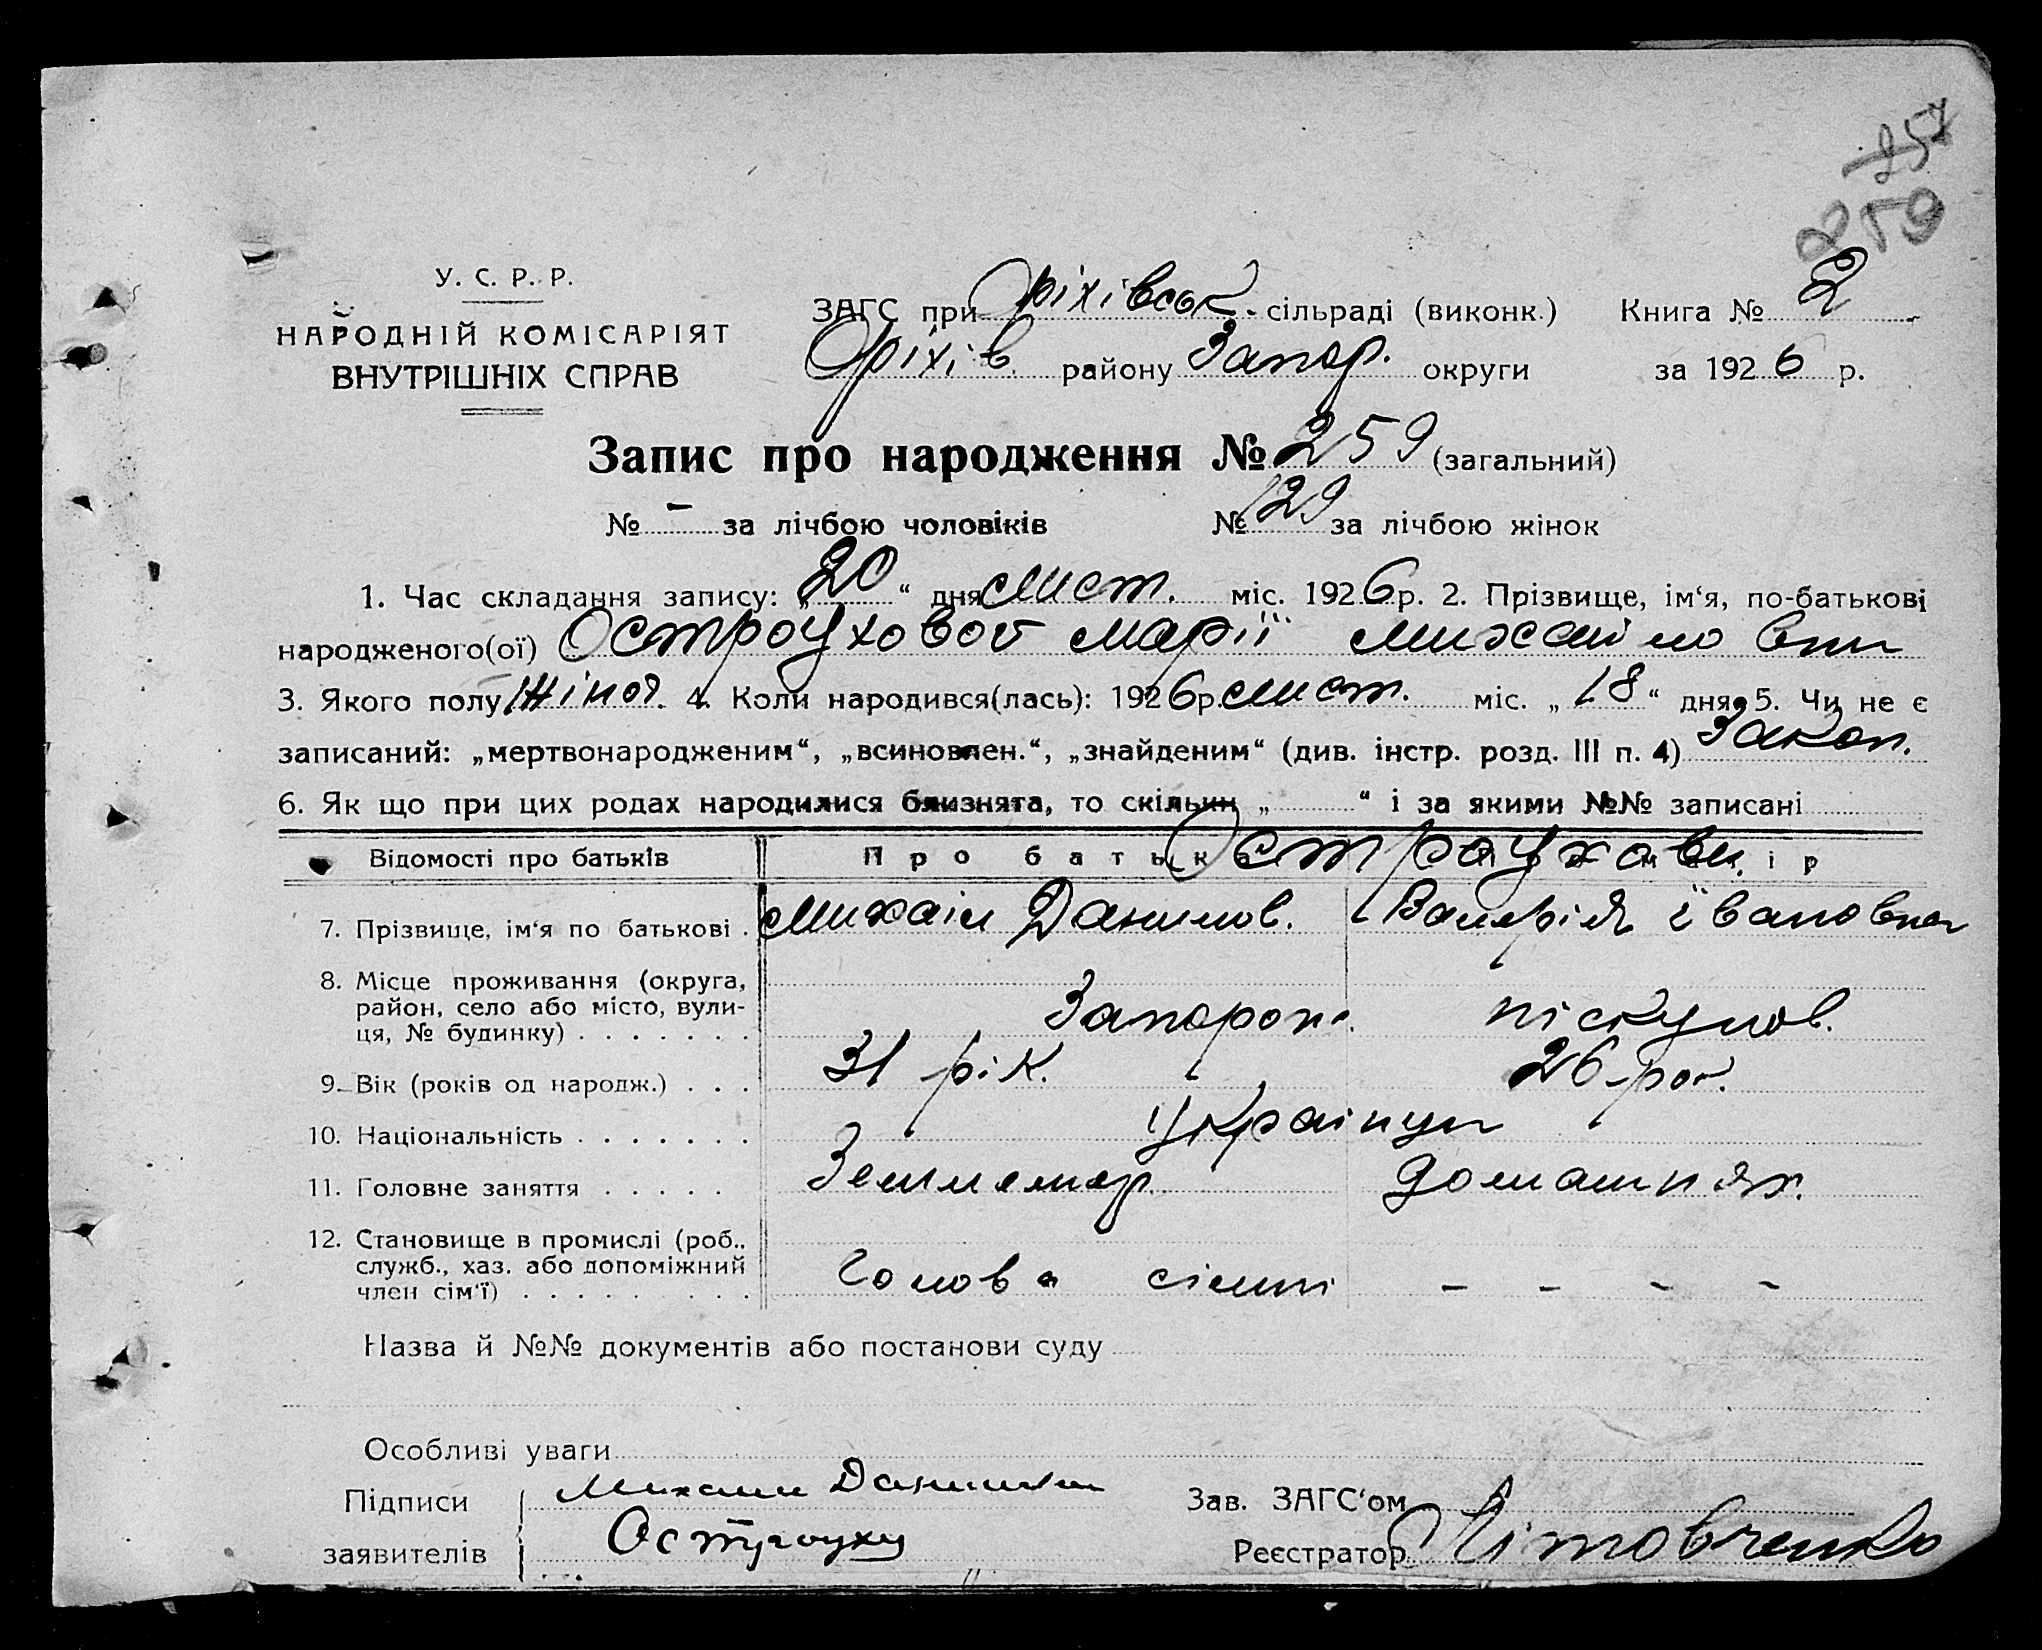 257
259
У. С. Р. Р.
НАРОДНІЙ КОМІСАРІЯТ
ВНУТРІШНІХ СПРАВ
ЗАГС при Оріхівськ. сільраді (виконк.) Книга № 2
Оріхів району Запор. округи за 1926 р.
Запис про народження № 259 (загальний)
№ - за лічбою чоловіків № 129 за лічбою жінок
1. Час складання запису: „20“ дня лист. міс. 1926 р. 2. Прізвище, ім‘я, по-батькові
народженого(ої) Остроуховой Марії Михайловни
3. Якого полу жіноч. 4. Коли народився(лась): 1926 р. лист. міс. „18“ дня 5. Чи не є
записаний: „мертвонародженим“, „всиновлен.“, „знайденим“ (див. інстр. розд. III п. 4) Закон.
6. Як що при цих родах народилися близнята, то скільки „ “ і за якими №№ записані
Відомості про батьків Про батька Остроухови
7. Прізвище, ім‘я по батькові . Михаіл Данилов. Валерія Івановна
8. Місце проживання (округа,
район, село або місто, вули-
ця, № будинку) . . . . . . . Запорож.
9. Вік (років од народж.) . . . 31 рік. 26 рок.
10. Національність . . . . . . . Українци
11. Головне заняття . . . . . Землемер. Домашнях.
12. Становище в промислі (роб.,
служб., хаз. або допоміжний
член сім‘ї) . . . . . . . . Голова сімні - - - -
Назва й №№ документів або постанови суду
Особливі уваги
Підписи Михаил Данилович Зав. ЗАГС‘ом
заявителів Остроух Реєстратор